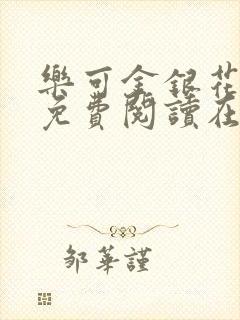 樂可金銀花
免費閱讀在
鄒華謹